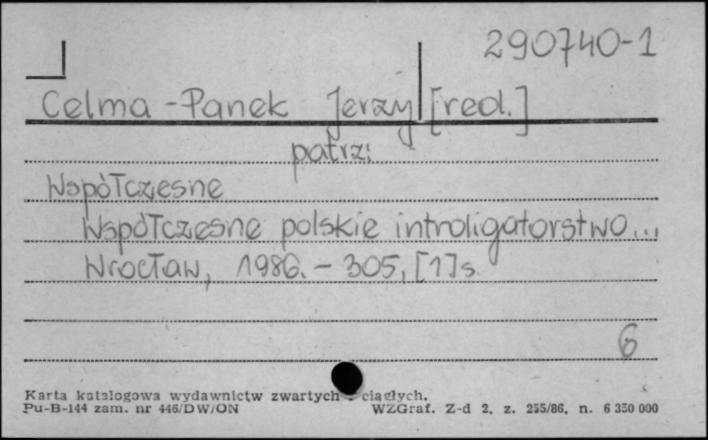 290740-1
Celma-Panek Jerzy [red.]
patrz:
Współczesne
Współczesne polskie introligatorstwo...
Wrocław, 1986. - 305, [1] s.
6
Karta katalogowa wydawnictw zwartych i ciągłych.
Pu-B-144 zam. nr 446/DW/ON WZGraf. Z-d 2, z. 255/86, n. 6 350 000